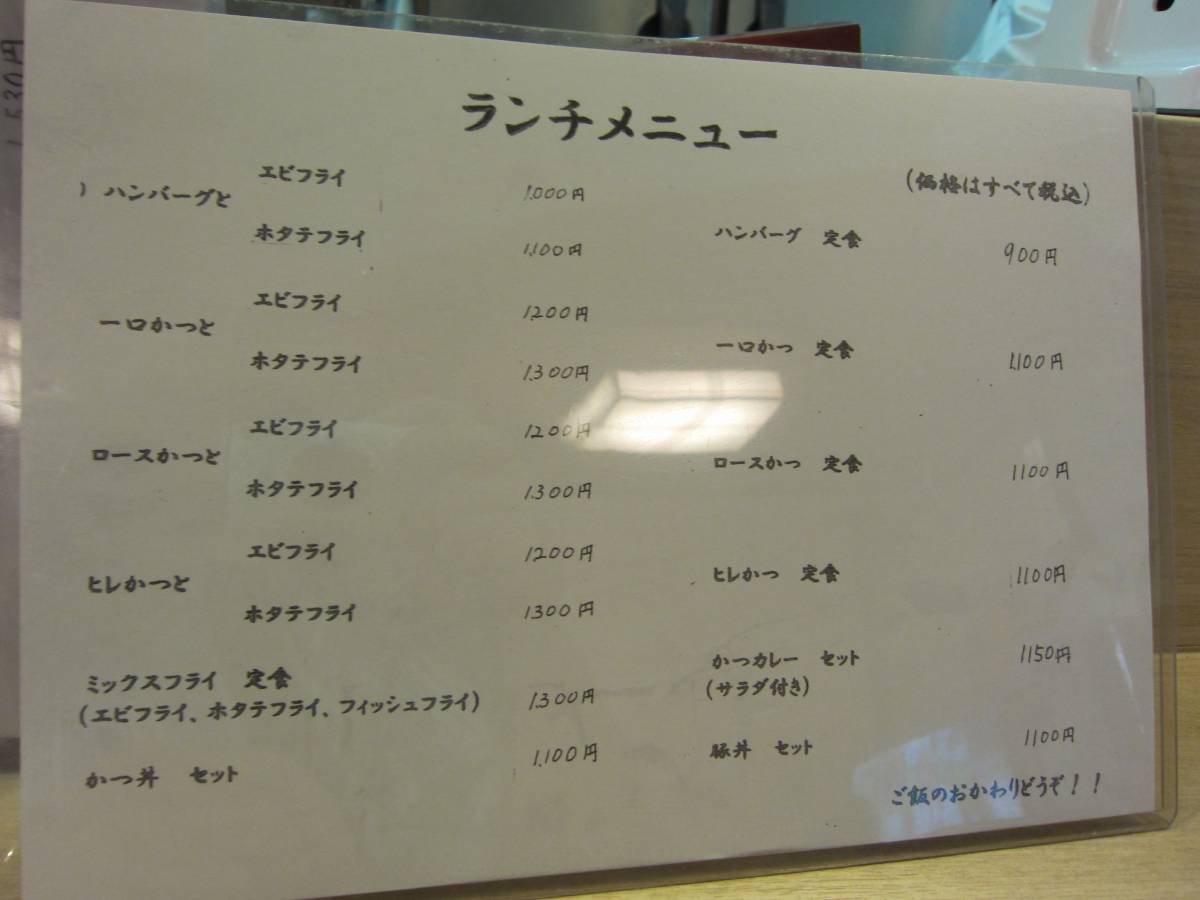 ランチメニュー
(価格はすべて税込)
ハンバーグと
エビフライ 1.000円
ホタテフライ 1.100円
一口かつと
エビフライ 1.200円
ホタテフライ 1.300円
ロースかつと
エビフライ 1200円
ホタテフライ 1.300円
ヒレかつと
エビフライ 1200円
ホタテフライ 1300円
ミックスフライ 定食
(エビフライ、ホタテフライ、フィッシュフライ) 1.300円
かつ丼 セット 1.100円
ハンバーグ 定食 900円
一口かつ 定食 1.100円
ロースかつ 定食 1100円
ヒレかつ 定食 1100円
かつカレー セット 1150円
(サラダ付き)
豚丼 セット 1100円
ご飯のおかわりどうぞ!!